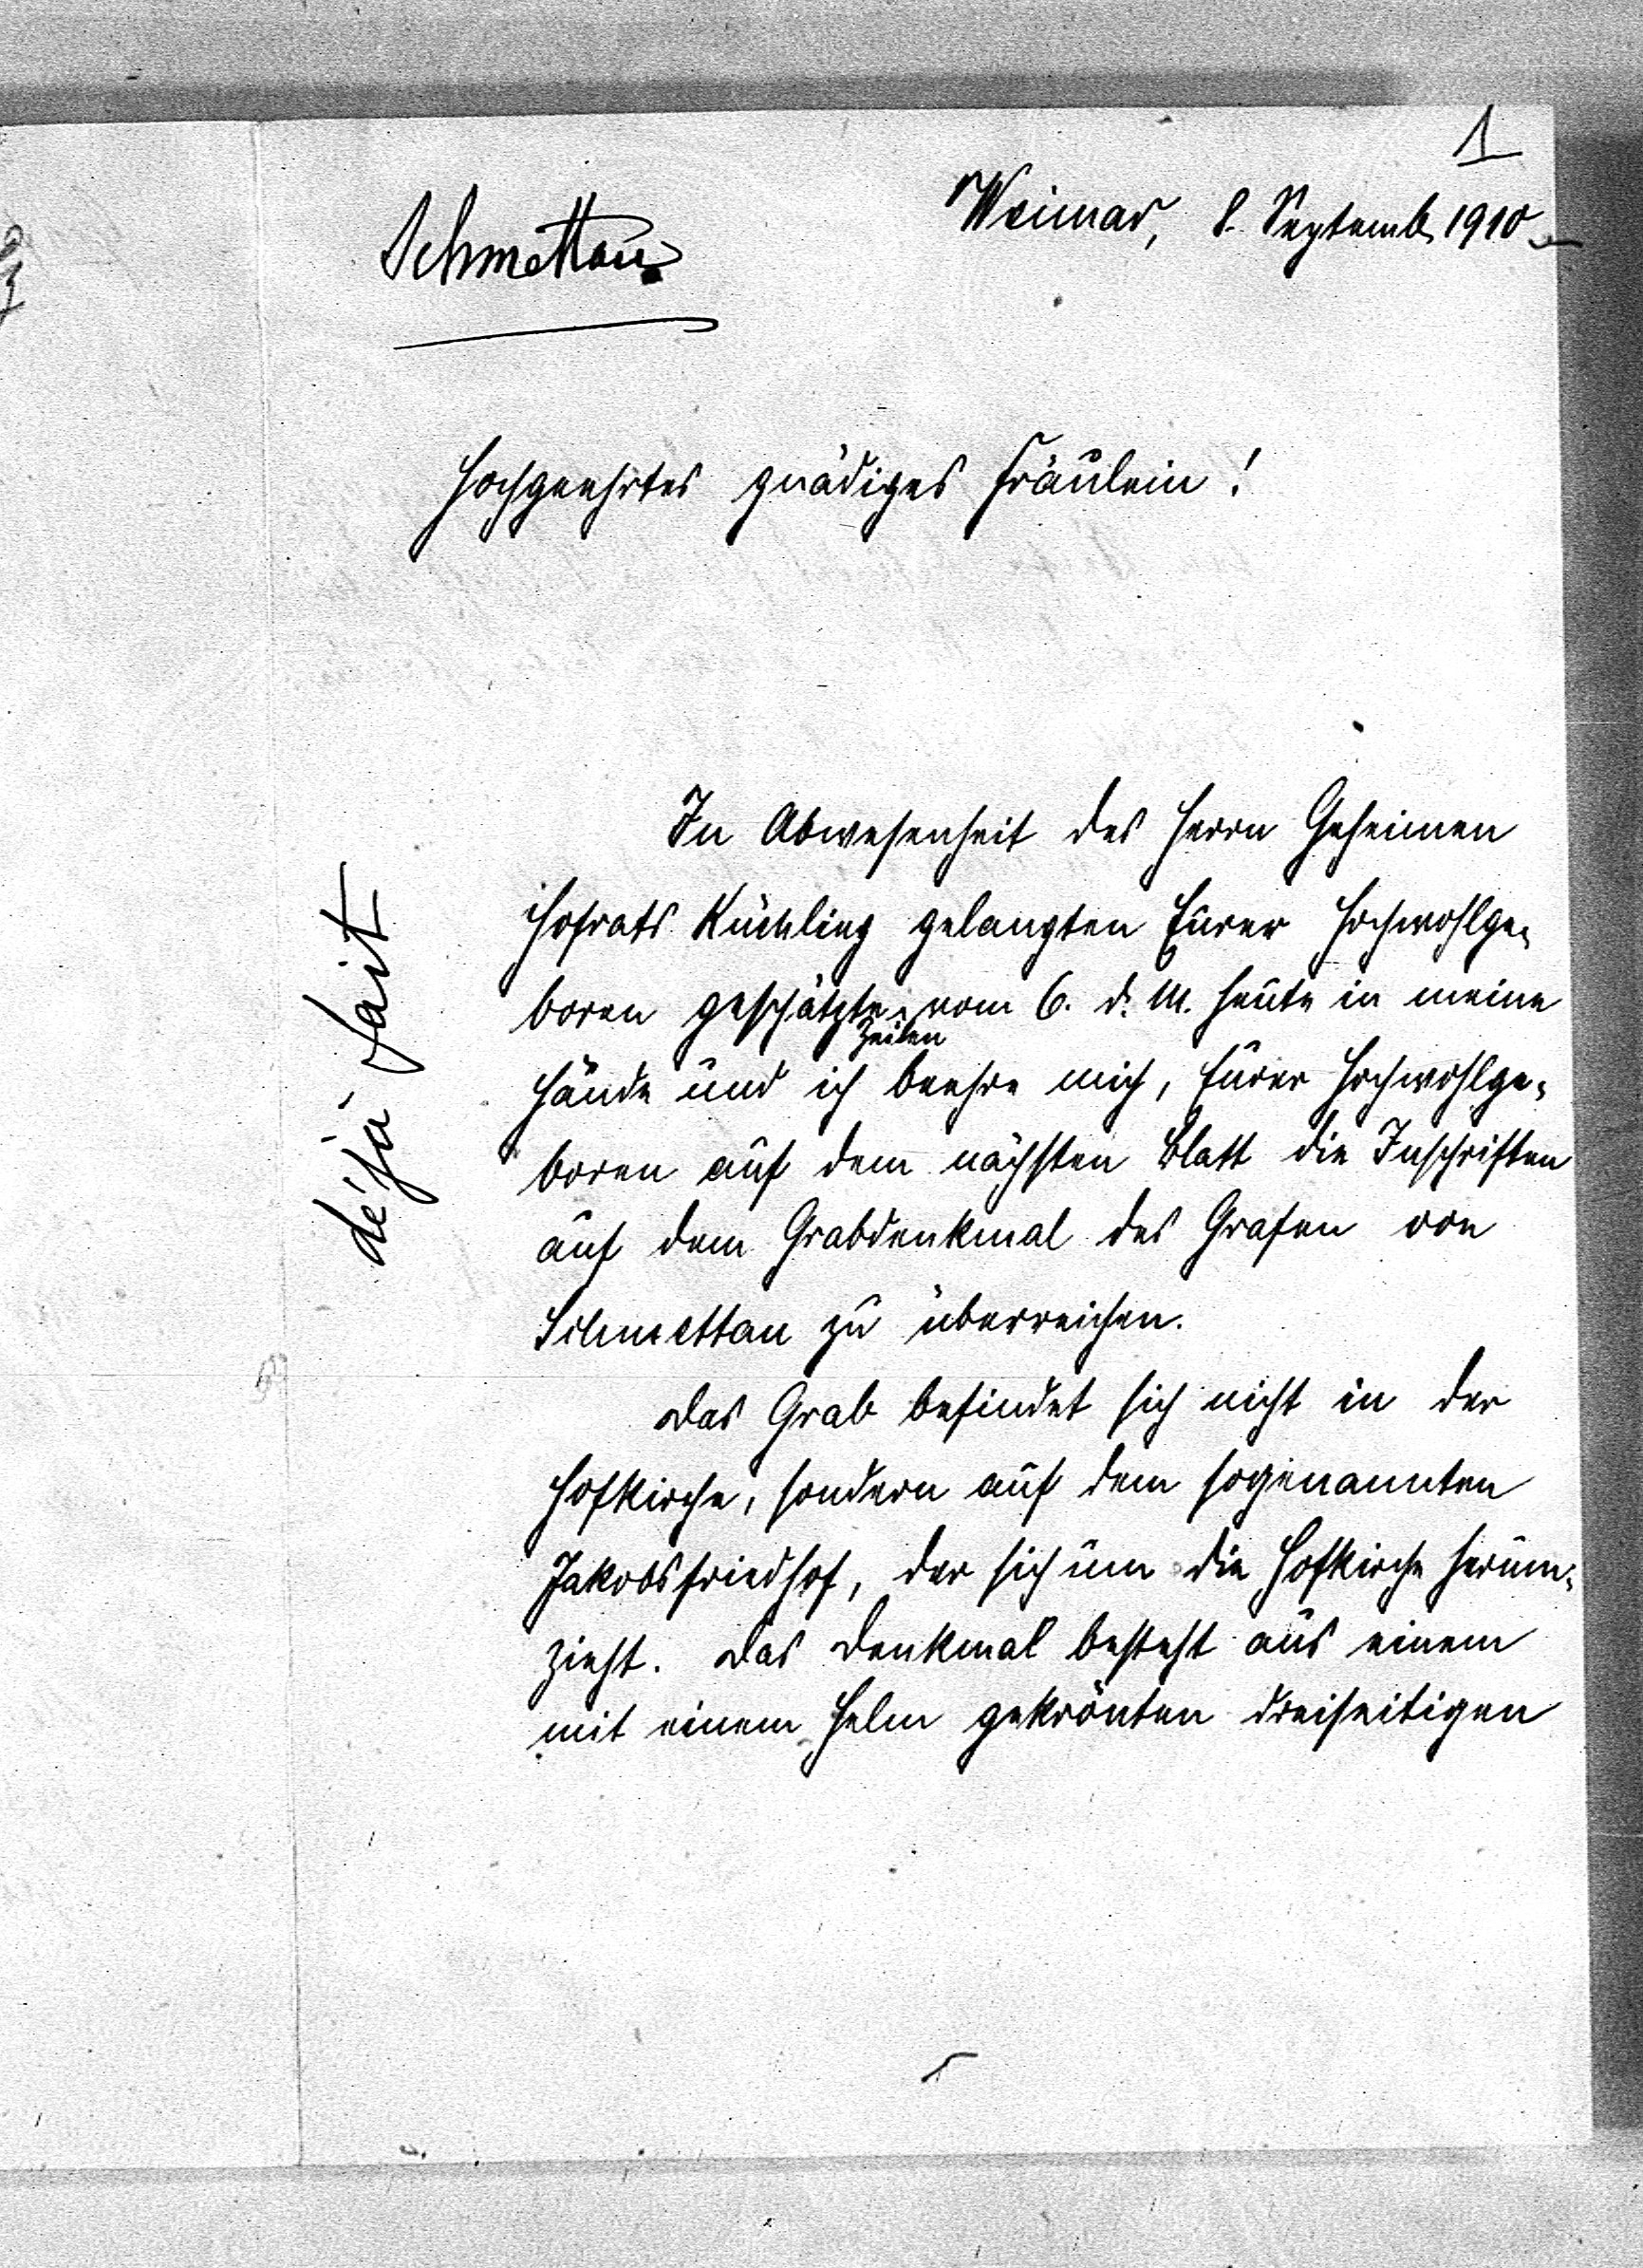 1
Weimar, 8. Septemb. 1910
Schmettau.
Hochgeehrtes gnädiges Fräulein!
In Abwesenheit des Herrn Geheimen
Hofrats gelangten Eurer Hochwohlge-
boren geschätzte Zeilen vom 6. d. M. heute in meine
Hände und ich beehre mich, Eurer Hochwohlge-
boren auf dem nächsten Blatt die Inschriften
auf dem Grabdenkmal des Grafen von
Schmettau zu überreichen.
Das Grab befindet sich nicht in der
Hofkirche, sondern auf dem sogenannten
Jakobsfriedhof, der sich um die Hofkirche herum-
zieht. Das Denkmal besteht aus einem
mit einem Helm gekrönten dreiseitigen
déjà fait